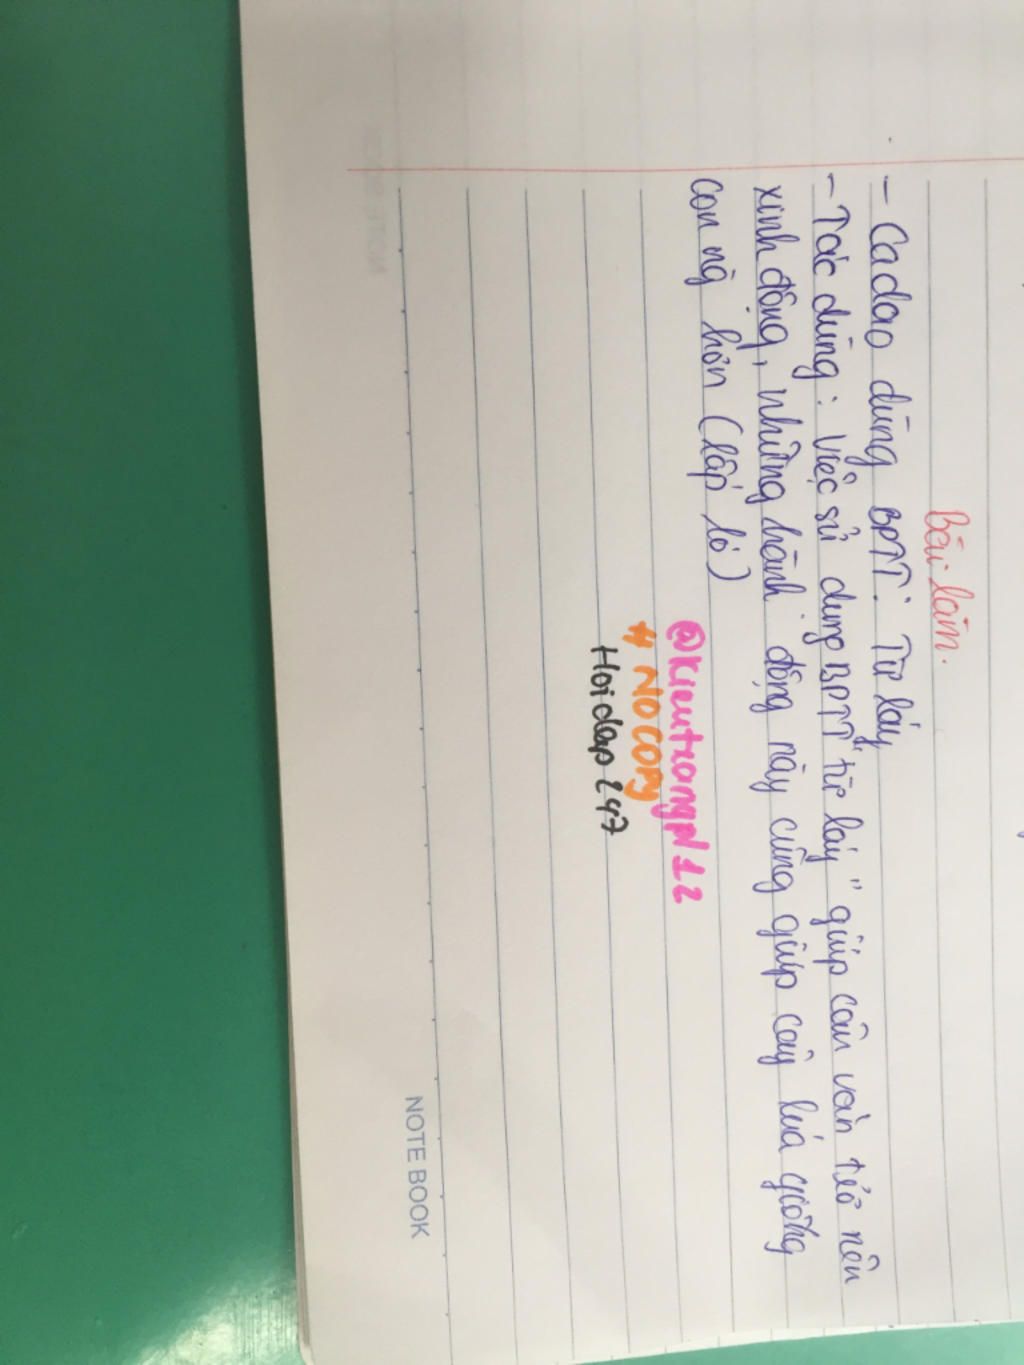 Bài làm.
- Ca dao dùng BPTT: Từ láy
- Tác dùng: Việc sử dụng BPTT "từ láy" giúp câu văn trở nên
xinh động, những hành động này cũng giúp cây lúa giống
con ng hơn (lấp ló)
@Kieutrangpl12
# NOCOPY
Hoidap247
NOTE BOOK